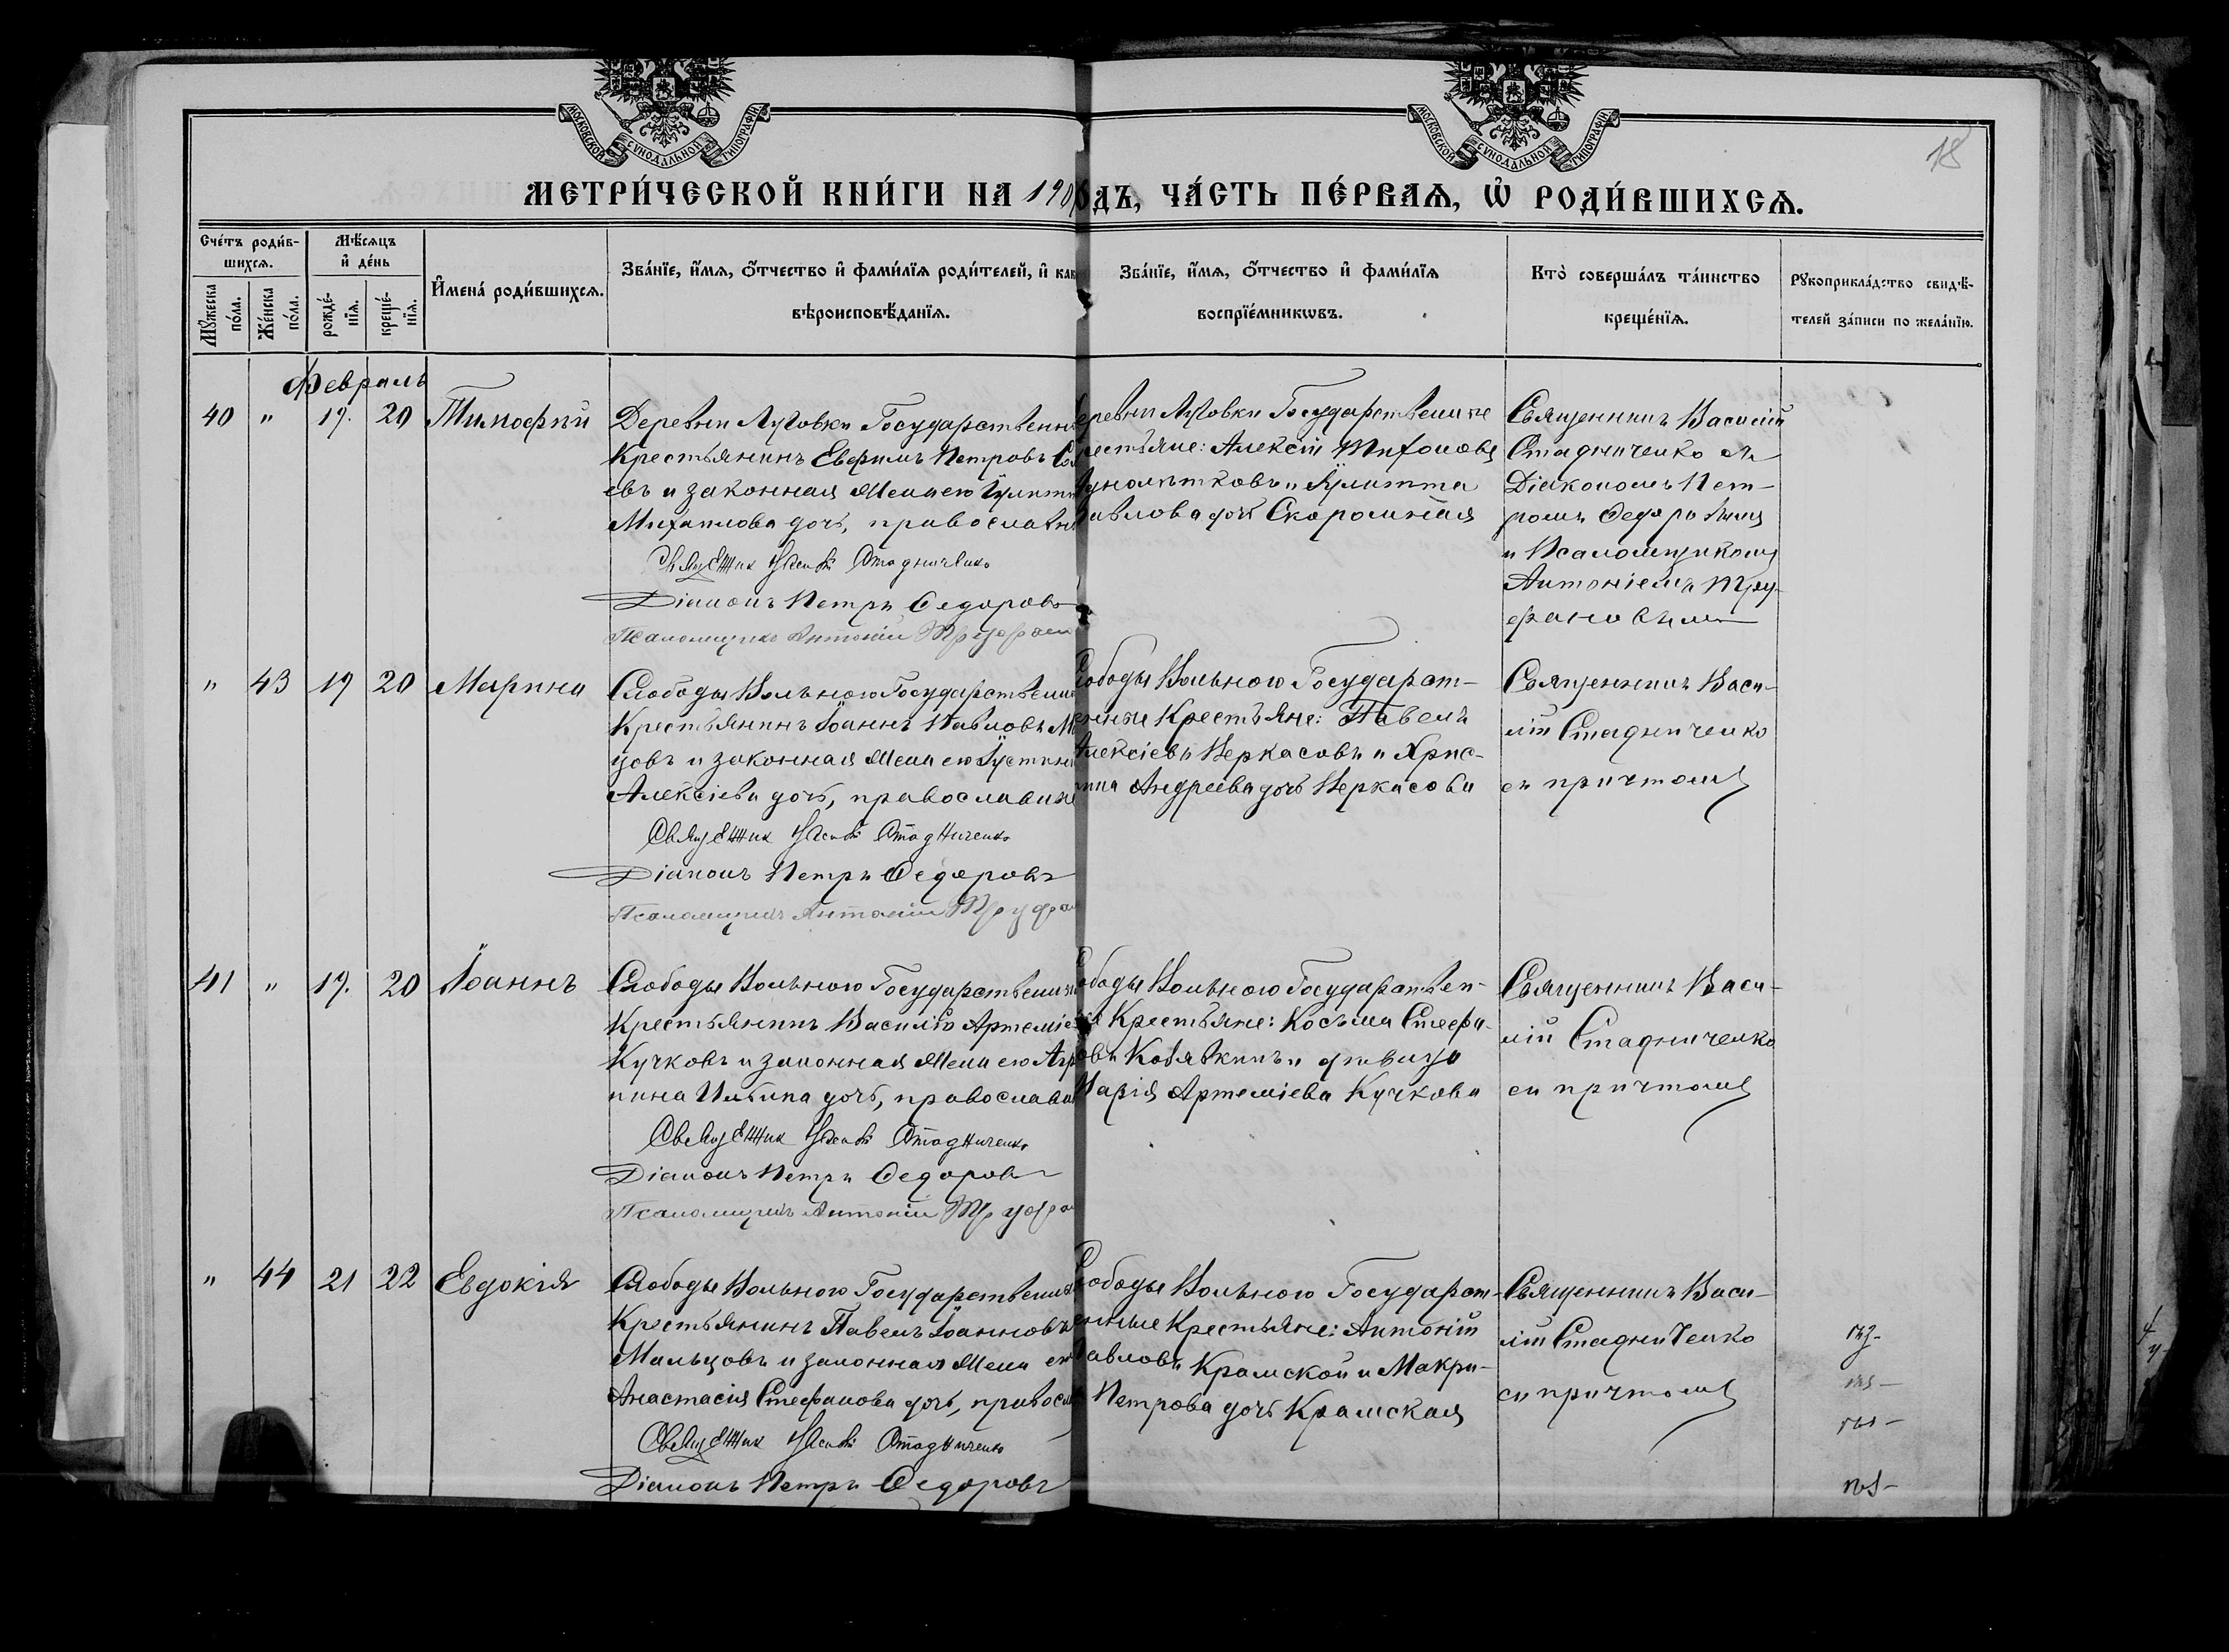 МОСКОВСКОЙ СУНОДАЛЬНОЙ ТИПОГРАФІИ
МОСКОВСКОЙ СУНОДАЛЬНОЙ ТИПОГРАФІИ
18
МЕТРИ́ЧЕСКОЙ КНИ́ГИ НА 190 дъ, ЧА́СТЬ ПЕ́РВАѦ, Ѿ РОДИ́ВШИХСѦ.
Сче́тъ роди́в-
шихсѧ.
Мꙋ́жеска по́ла.
Же́нска по́ла.
Мѣ́сѧцъ
и҆ де́нь
рожде́-
нїѧ.
креще́-
нїѧ.
И҆мена́ роди́вшихсѧ.
Зва́нїе, и҆́мѧ, о҆́тчество и҆ фами́лїѧ роди́телей, и҆ как
вѣроисповѣ́данїѧ.
Зва́нїе, и҆́мѧ, о҆́тчество и҆ фами́лїѧ
воспрїе́мникѡвъ.
Кто̀ соверша́лъ та́инство
креще́нїѧ.
Рꙋкоприкла́дство свидѣ́-
телей за́писи по жела́нїю.
Февраль
40 " 17. 20 Тимофей
Деревни Луговки Государственн
Крестьянинъ Евфимъ Петровъ
евъ и законная жена его Іулитт
Михаилова дочь, православн
Священник Василій Стадниченко
Діаконъ Петръ Федоровъ
Псаломщикъ Антоній Труфан
еревни Луговки Государственные
рестьяне: Алексій Тихоновъ
и Іулитта
авлова дочь Скоромная
Священникъ Василій
Стадниченко съ
Діакономъ Пет-
ромъ Федоровымъ
и Псаломщикомъ
Антоніемъ Тру-
фановымъ
" 43 19 20 Марина
Слободы Вольного Государственн
Крестьянинъ Іоаннъ Павловъ М
цовъ и законная жена его Іустин
Алексіева дочь, православные
Священник Василій Стадниченко
Діаконъ Петръ Федоровъ
Псаломщикъ Антоній Труфан
лободы Вольного Государст-
енные Крестьяне: Павелъ
Алексіевъ Черкасовъ и Хрис-
тина Андреева дочь Черкасова
Священникъ Васи-
лій Стадниченко
съ причтомъ
41 " 19. 20 Іоаннъ
Слободы Вольного Государственн
Крестьянинъ Василій Артеміе
Кучковъ и законная жена его Агр
пина Ильина дочь, православн
Священник Василій Стадниченко
Діаконъ Петръ Федоровъ
Псаломщикъ Антоній Труфан
ободы Вольного Государствен-
Крестьяне: Косьма Стефа-
овъ Ковяткинъ и девица
Марія Артеміева Кучкова
Священникъ Васи-
лій Стадниченко
съ причтомъ
" 44 21 22 Евдокія
Слободы Вольного Государственн
Крестьянинъ Павелъ Іоанновъ
Мальцовъ и законная жена ег
Анастасія Стефанова дочь, правосл
Священник Василій Стадниченко
Діаконъ Петръ Федоровъ
лободы Вольного Государст-
енные Крестьяне: Антоній
Павловъ Крамской и Макри-
Петрова дочь Крамская
Священникъ Васи-
лій Стадниченко
съ причтомъ